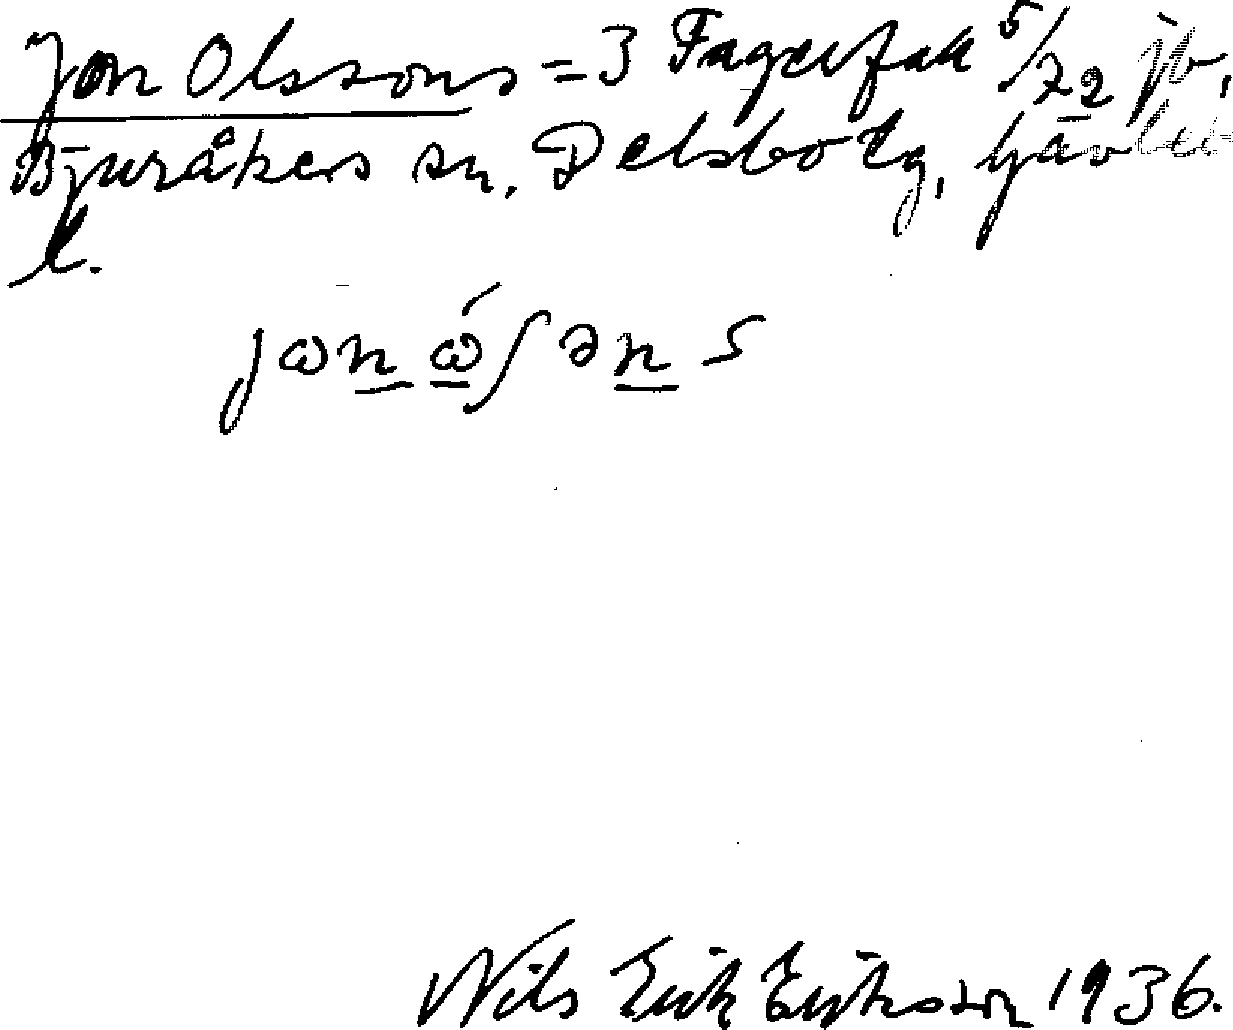 Jon Olssons = 3 Fagerfall 5/72 jb,
Bjuråkers sn. Delsbo tg, Gävleb
l.
jωn ώʃəns
Nils Erik Eriksson 1936.